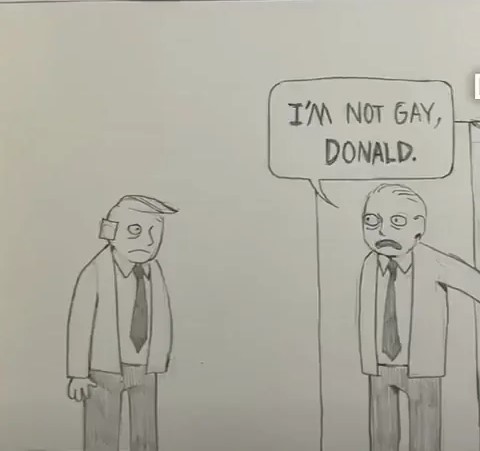 I'M NOT GAY,
DONALD.